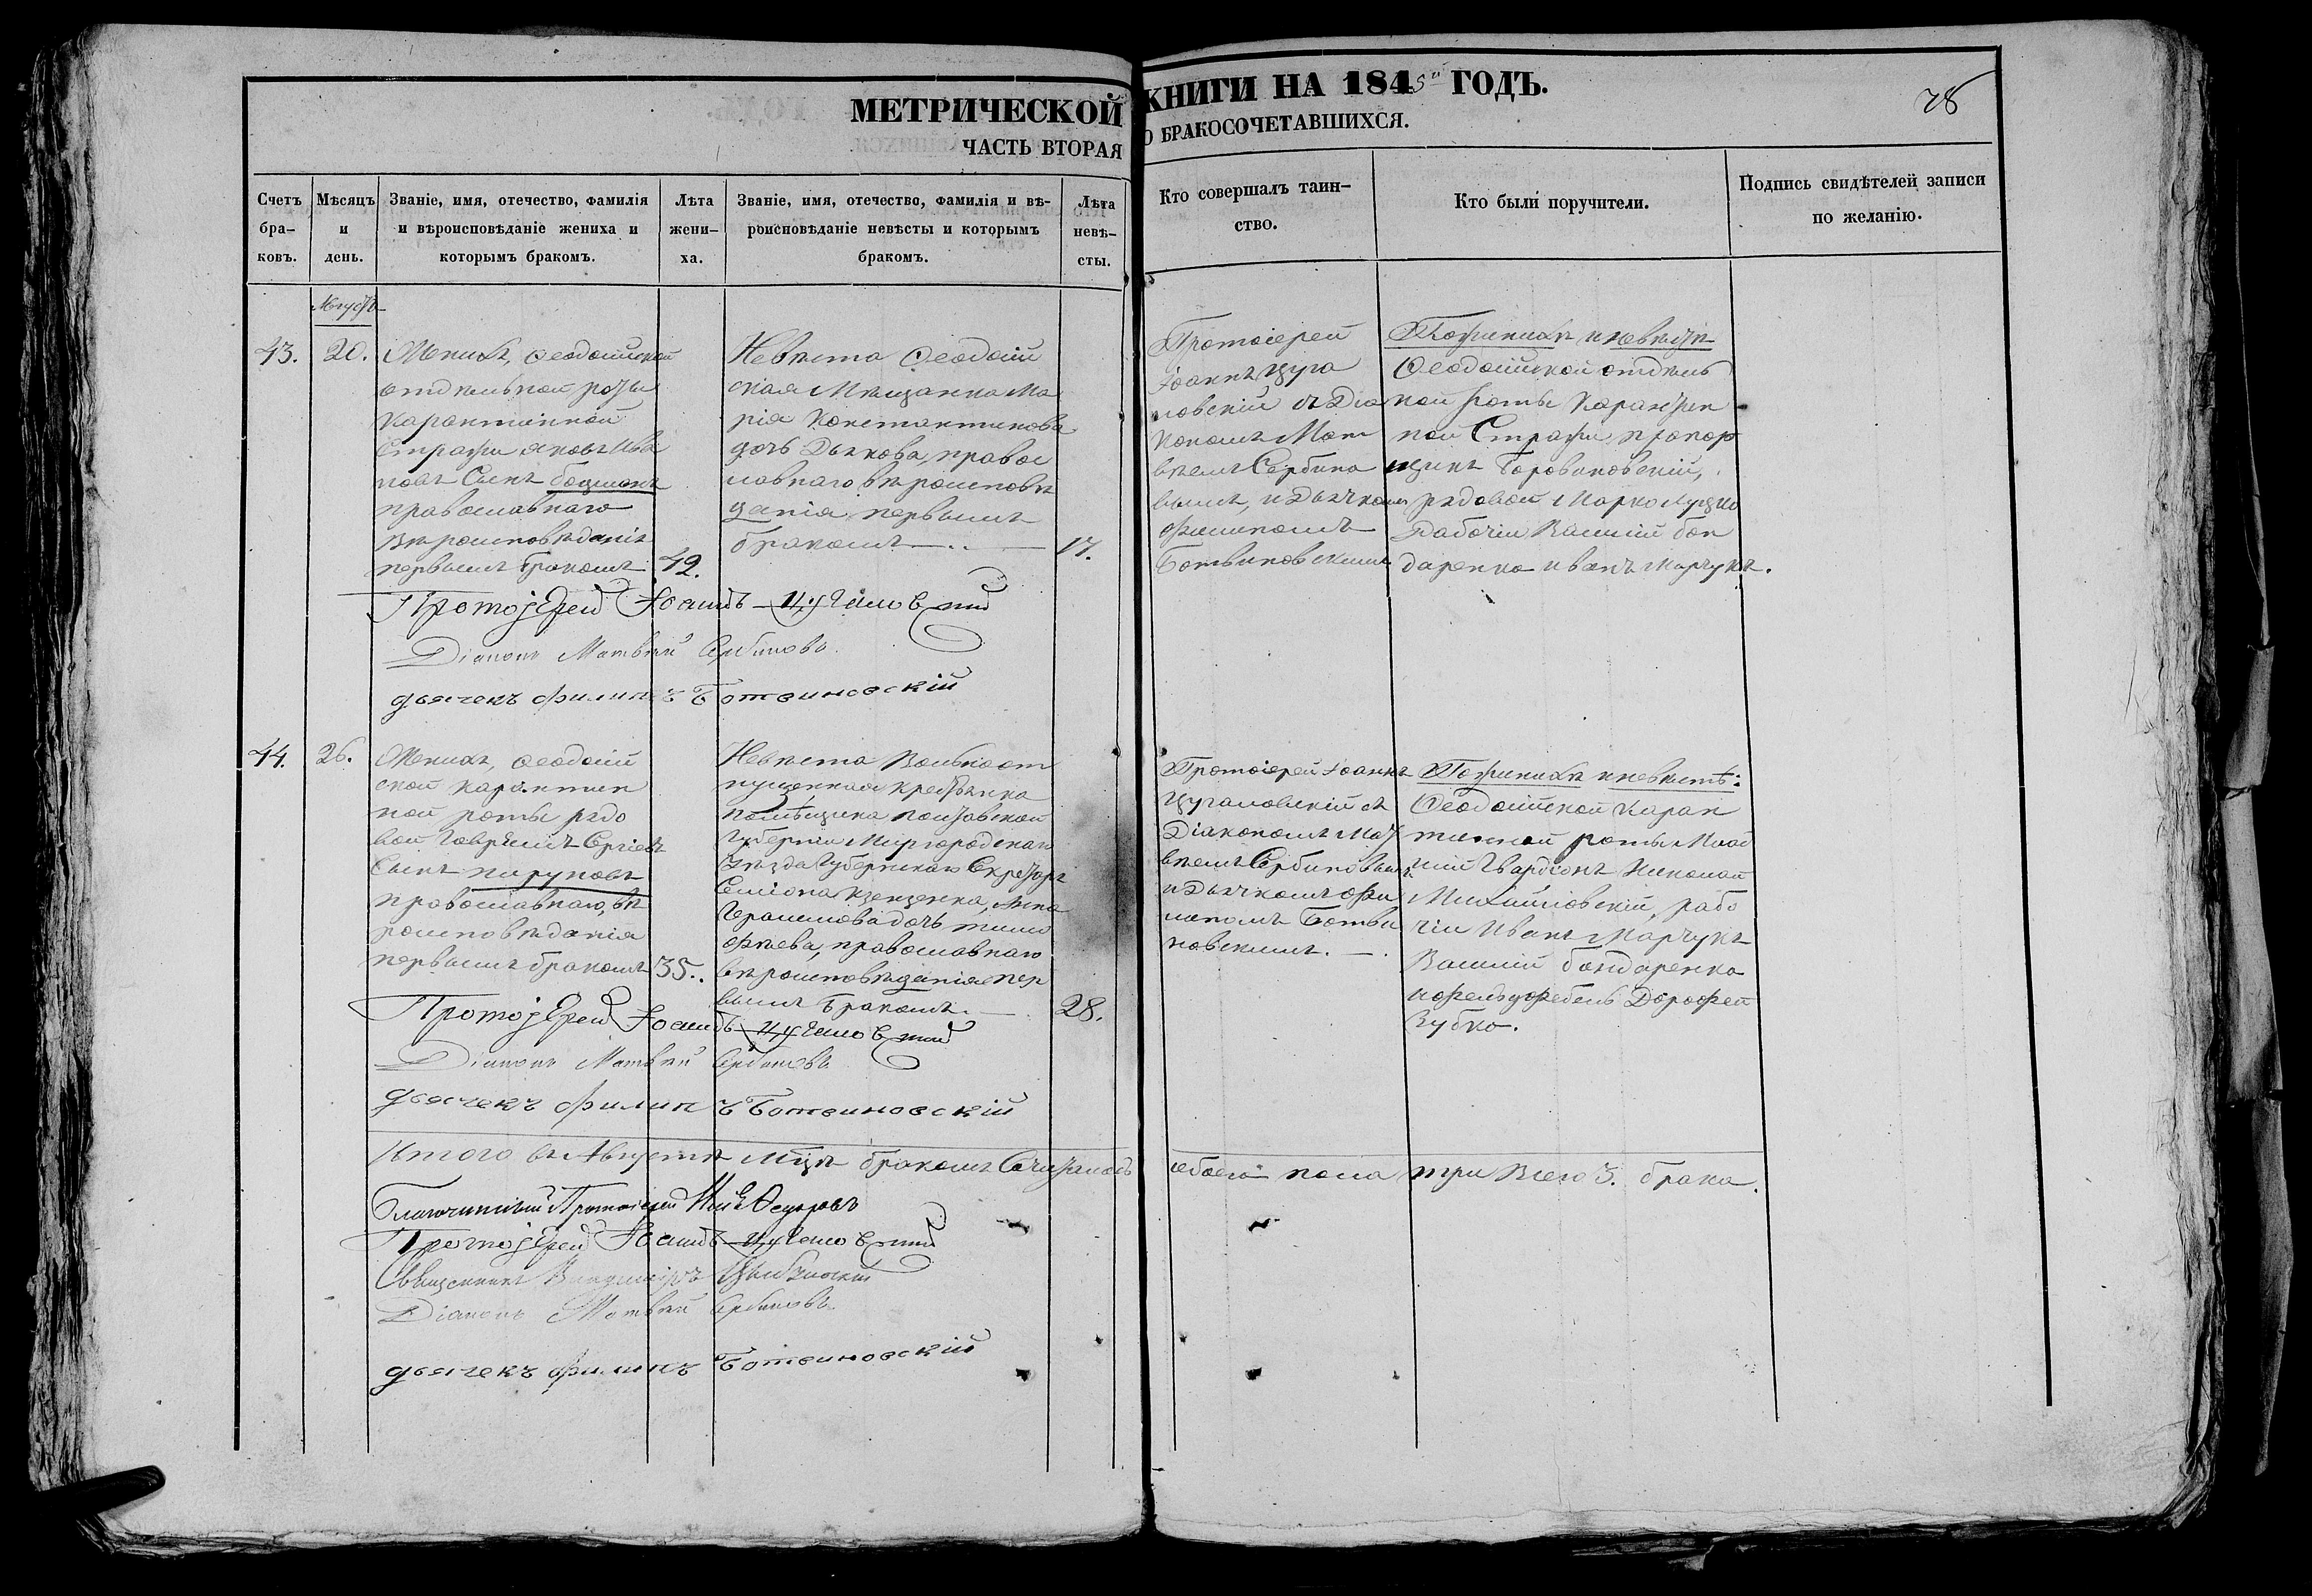 МЕТРИЧЕСКОЙ КНИГИ НА 1845й ГОДЪ.
28
ЧАСТЬ ВТОРАЯ О БРАКОСОЧЕТАВШИХСЯ.
Счетъ браковъ.
Мѣсяцъ и день.
Званіе, имя, отечество, фамилія
и вѣроисповѣданіе жениха и
которымъ бракомъ.
Лѣта жениха.
Званіе, имя, отечество, фамилія и вѣ-
роисповѣданіе невѣсты и которымъ
бракомъ.
Лѣта невѣ-
сты.
Кто совершалъ таин-
ство.
Кто были поручители.
Подпись свидѣтелей записи
по желанію.
Августъ
43.
20.
Женихъ, Феодосійской
отдѣльной роты
Карантинной
Стражи Яковъ Ива
новъ Сынъ боцманъ
православнаго
вѣроисповѣданія
первымъ бракомъ
42.
Невѣста Феодосій
ская Мѣщанка Ма
рія Константинова
дочь Дьякова, право
славнаго вѣроисповѣ
данія первымъ
бракомъ
17.
Протоіерей
Іоаннъ Цуга
ловскій съ Діа
кономъ Мат
вѣемъ Сербино
вымъ, и Дьячкомъ
Филипомъ
Ботвиновскимъ
По женихѣ и невѣстѣ
Феодосійской отдѣль
ной роты Карантин
ной Стражи прапор
щикъ Боровиковскій,
рядовой Марко Луцко
Рабочіи Василій бон
даренко Иванъ Марчукъ.
Протоjерей Іоаннъ Цугаловскій
Діаконъ Матвѣй Сербиновъ
дьячекъ филипъ Ботвиновскій
44.
26.
Женихъ, Феодосій
ской Карантин
ной роты рядо
вой Гаврѣилъ Сергіевъ
Сынъ пируновъ
православнаго, вѣ
роисповѣданія
первымъ бракомъ
35.
Невѣста Вольноот
пущенная крестьянка
помѣщика Полтавской
Губерніи Миргородскаго
Уѣзда Губернскаго Секретаря
Герасимова дочь Тимо
фѣева, православнаго
вѣроисповѣданія пер
вымъ бракомъ.
28.
Протоіерей Іоаннъ
Цугаловскій съ
Діакономъ Мат
вѣемъ Сербиновымъ
и Дьячкомъ Фи
липомъ Ботви
новскимъ.
По женихѣ и невѣстѣ:
Феодосійской Каран
тинной роты Млад
шій Гвардіонъ Николай
Михайловскій, рабо
чіи Иванъ Марчукъ
Василій бондаренко
и фельдфебель Дорофей
Зубко.
Протоjерей Іоаннъ Цугаловскій
Діаконъ Матвѣй Сербиновъ
дьячекъ филипъ Ботвиновскій
Итого въ Августѣ мцѣ бракомъ Сочеталось обоего пола три Всего 3. брака.
Благочинный Протоіерей Феодоровъ
Протоjерей Іоаннъ Цугаловскій
Священникъ Владиміръ
Діаконъ Матвѣй Сербиновъ
дьячекъ филипъ Ботвиновскій